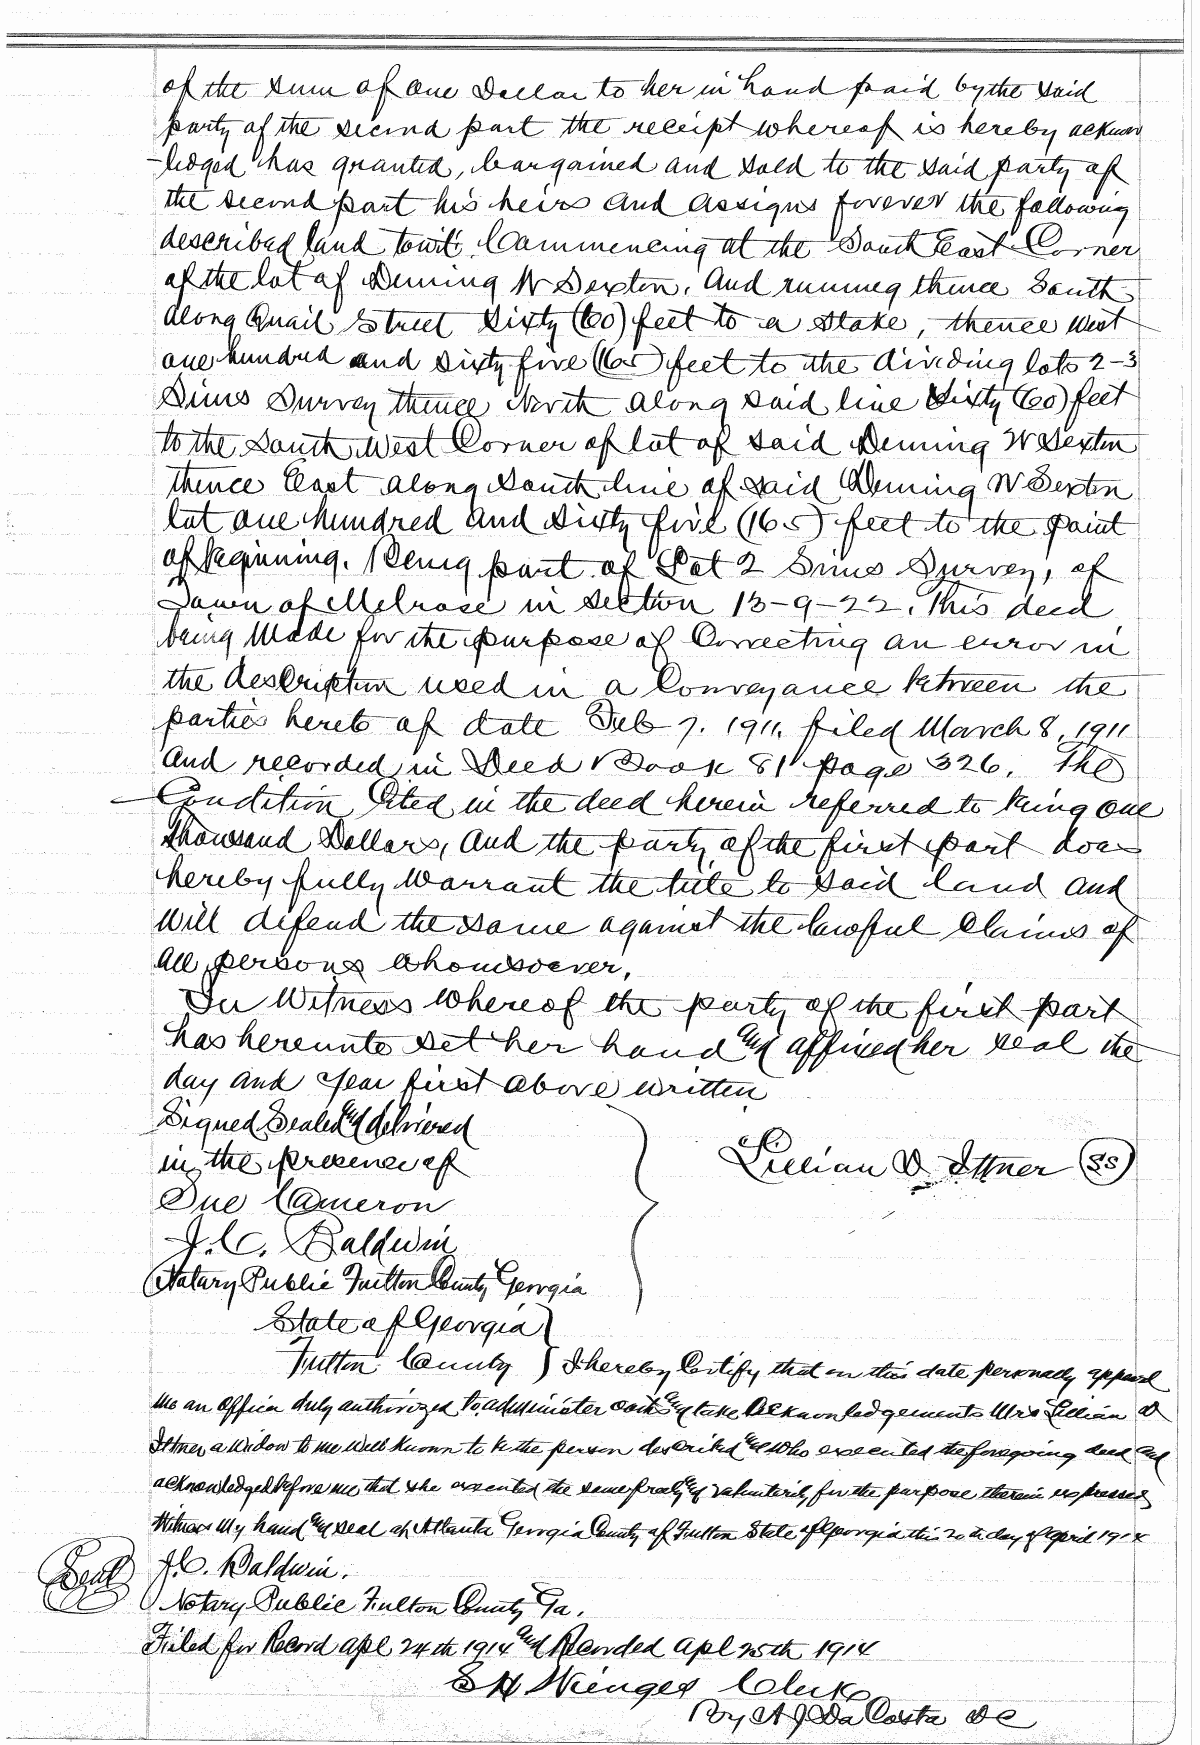 of the sum of one Dollar to her in hand paid by the said
party of the second part the receipt whereof is hereby acknow
-ledged has granted, bargained and sold to the said party of
the second part his heirs and assigns forever the following
described land towit. Commencing at the South East Corner
of the lot of Deming W Sexton. and running thence South
along Quail Street Sixty (60) feet to a stake, thence West
one hundred and sixty five (165) feet to the dividing lots 2-3
Sims Survey thence North along said line Sixty (60) feet
to the South West Corner of lot of said Deming W Sexton
thence East along South line of said Deming W Sexton
lot one hundred and sixty five (165) feet to the point
of beginning. Being part of Lot 2 Sims Survey, of
Town of Melrose in section 13-9-22. This deed
being made for the purpose of Correcting an error in
the description used in a Conveyance between the
parties hereto of date Feb 7. 1911. filed March 8, 1911
and recorded in Deed Book 81 page 326. The
Condition Cited in the deed herein referred to being one
thousand Dollars, and the party of the first part does
hereby fully warrant the title to said land and
will defend the same against the lawful claims of
all persons whomsoever,
In Witness whereof the party of the first part
has hereunto set her hand and affixed her seal the
day and year first above written
Signed Sealed and delivered
in the presence of
Lillian D. Ittner (SS)
Sue Cameron
J.C. Baldwin
Notary Public Fulton County Georgia
State of Georgia }
Fulton County } I hereby Certify that on this date personally appeared
me an officer duly authorized to administer oaths and take acknowledgements Mrs Lillian D
Ittner a widow to me well known to be the person described and who executed the foregoing deed and
acknowledged before me that she executed the same freely and voluntarily for the purpose therein expressed
Witness my hand and seal at Atlanta Georgia County of Fulton State of Georgia this 20th day of April 1914
Seal J.C. Baldwin.
Notary Public Fulton County Ga.
Filed for Record Apl 24th 1914 and Recorded Apl 25th 1914
S H Wienges Clerk
By A J Da Costa DC